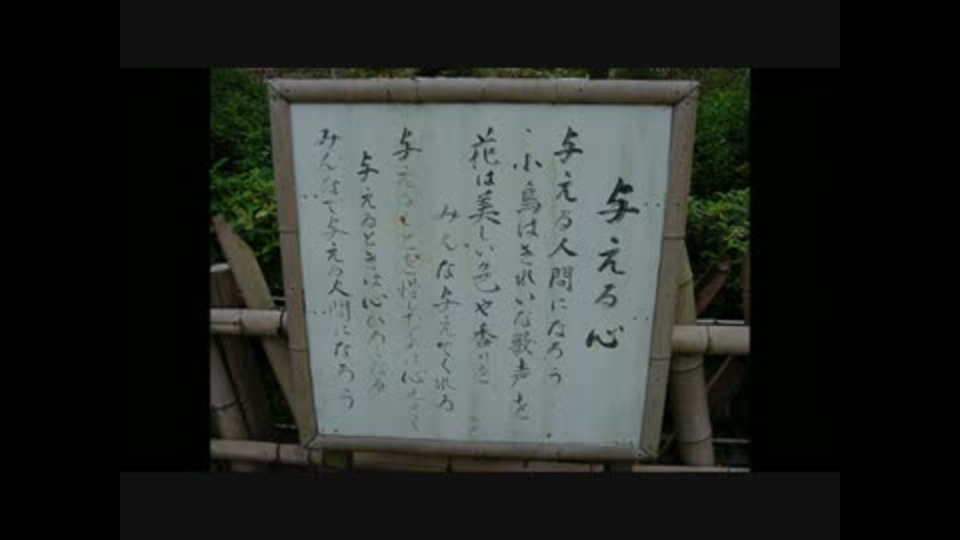 与える心
与える人間になろう
小鳥はきれいな歌声を
花は美しい色や香りを
みんな与えてくれる
与えることを惜しむ
与えるときは心が
みんなで与える人間になろう